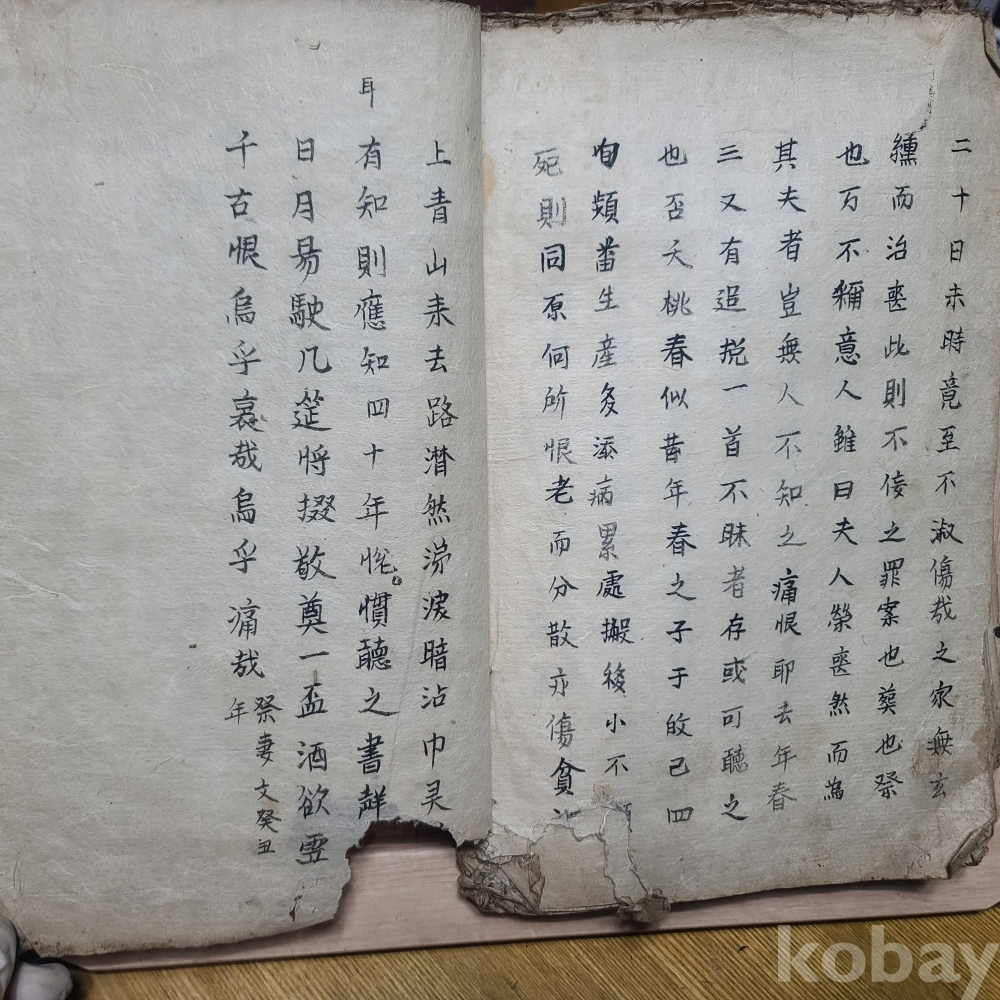 二十日未時竟至不淑傷哉之家無玄
纁而治喪此則不侫之罪案也葬也祭
也万不稱意人雖曰夫人榮喪然而為
其夫者豈無人不知之痛恨耶去年春
三又有追挽一首不昧者存或可聽之
也否夭桃春似昔年春之子于故已四
旬頻蕃生產多添病累處搬移小不
死則同原何所恨老而分散亦傷貧
上青山来去路潸然涕淚暗沾巾灵
有知則應知四十年恍慣聽之書
耳
日月易駛几筵将掇敬奠一盃酒欲
千古恨烏乎哀哉烏乎痛哉
祭妻文癸丑
年
kobay